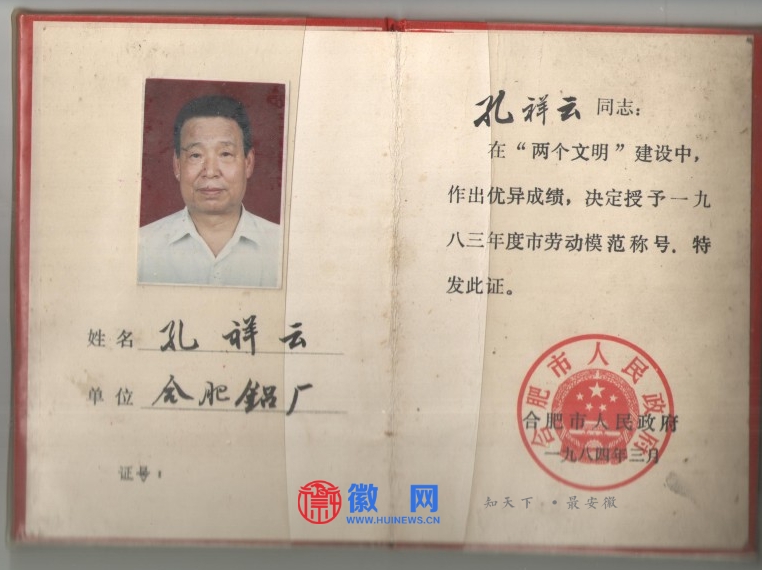 姓名 孔祥云
单位 合肥铝厂
证号：
孔祥云 同志：
在“两个文明”建设中，
作出优异成绩，决定授予一九
八三年度市劳动模范称号．特
发此证。
合肥市人民政府
合肥市人民政府
一九八四年三月
徽网
WWW.HUINEWS.CN
知天下·最安徽